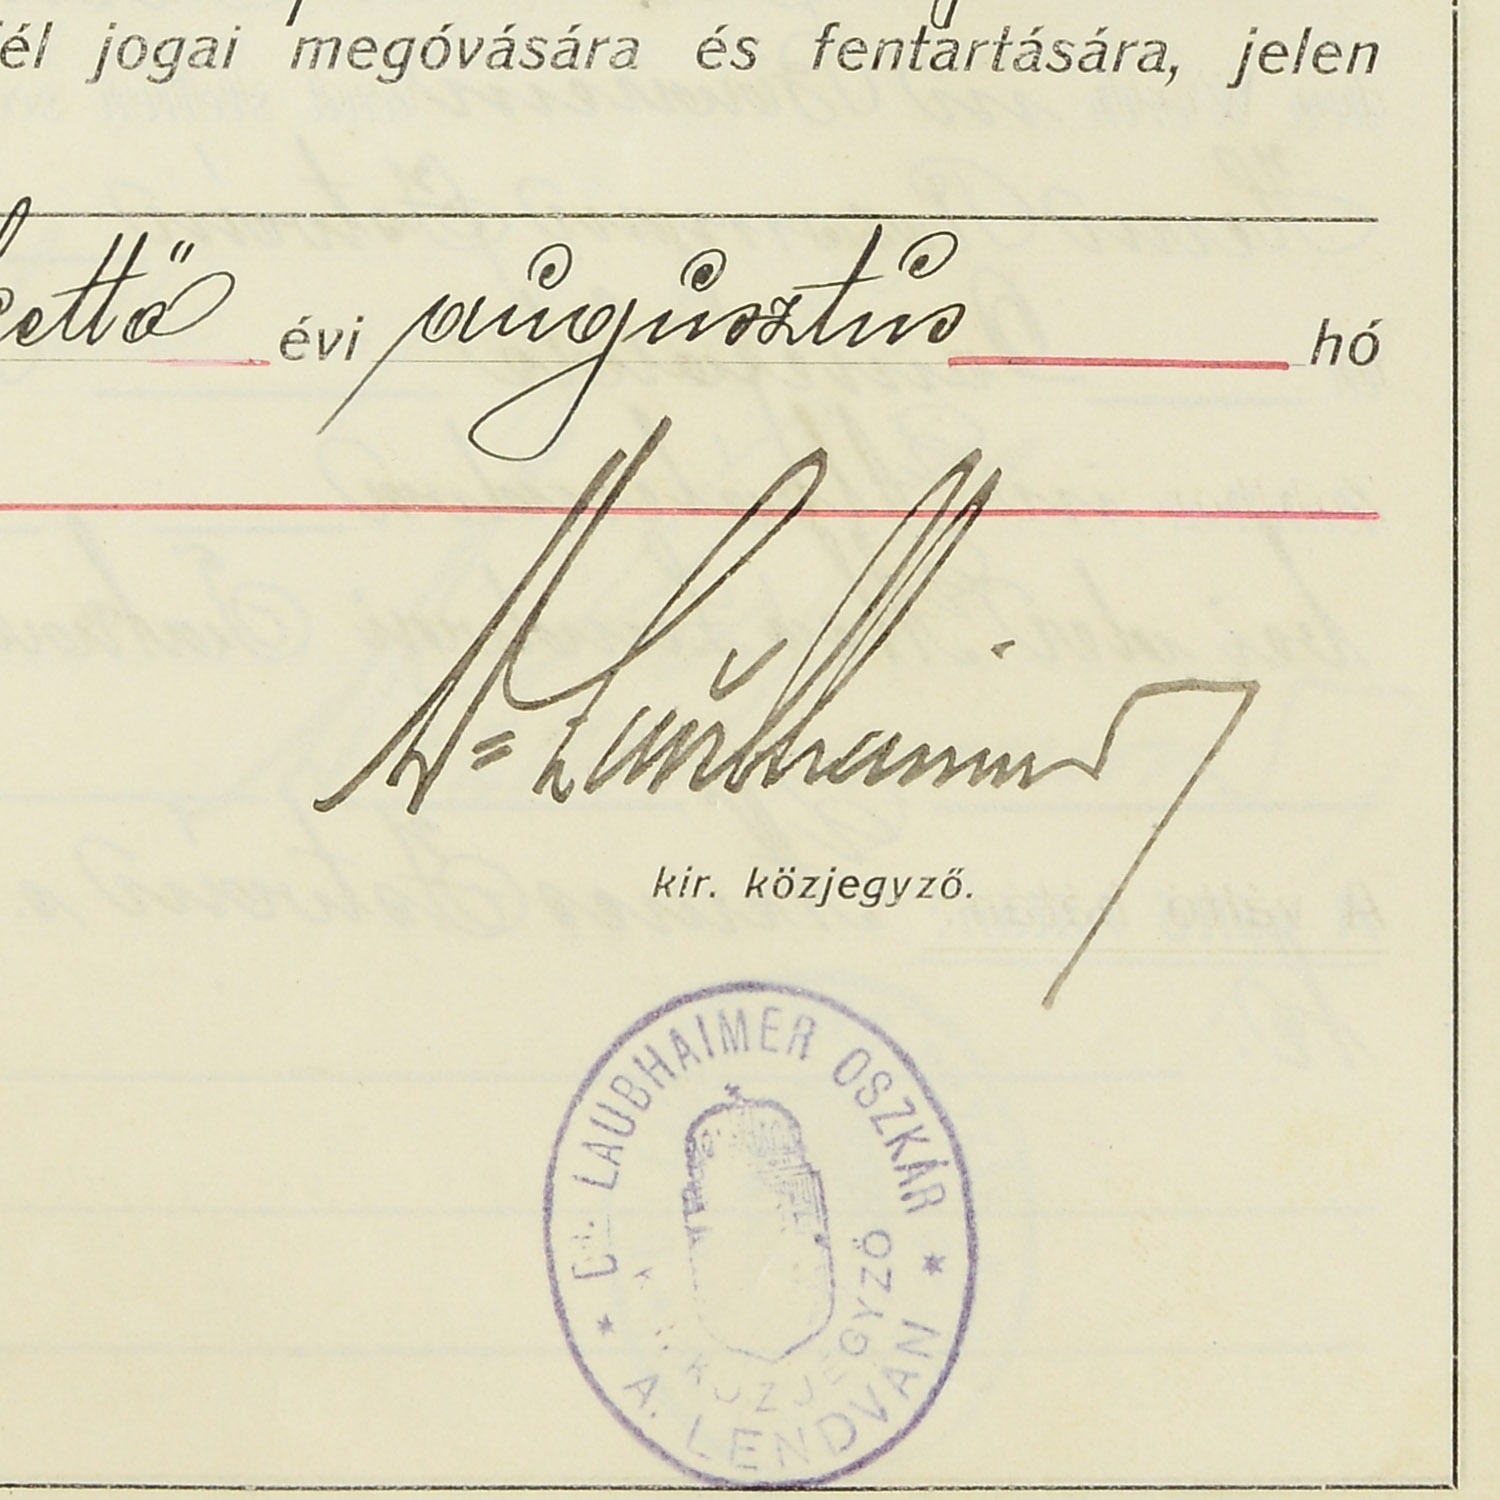 él jogai megóvására és fentartására, jelen
kettő évi augusztus hó
Dr. Laubhaimer
kir. közjegyző.
Dr. LAUBHAIMER OSZKÁR
KÖZJEGYZŐ
* A. LENDVÁN *